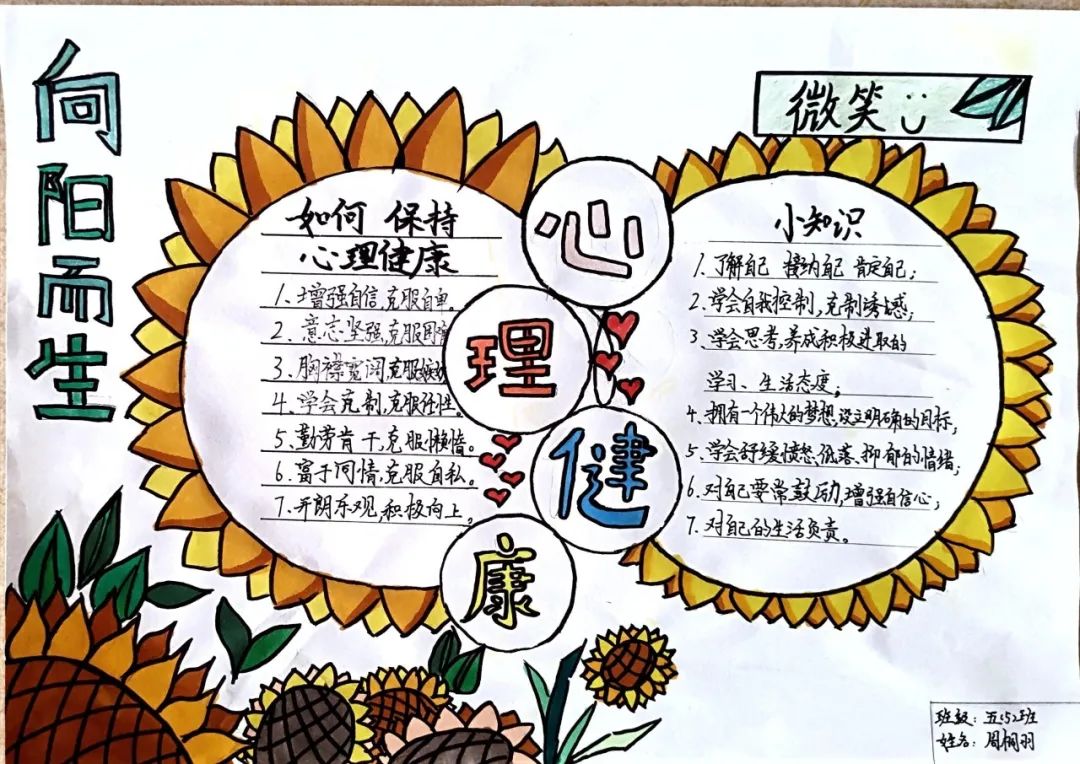 向阳而生
微笑
心理健康
如何 保持
心理健康
1、增强自信,克服自卑。
2、意志坚强,克服困
3、胸襟宽阔,克服嫉妒
4、学会克制,克服任性。
5、勤劳肯干,克服懒惰。
6、富于同情,克服自私。
7、开朗乐观,积极向上。
小知识
1、了解自己 接纳自己 肯定自己;
2、学会自我控制,克制诱惑;
3、学会思考,养成积极进取的
学习、生活态度;
4、拥有一个伟大的梦想,设立明确的目标;
5、学会舒缓愤怒、低落、抑郁的情绪;
6、对自己要常鼓励,增强自信心;
7、对自己的生活负责。
班级:五(5)班
姓名:周桐羽